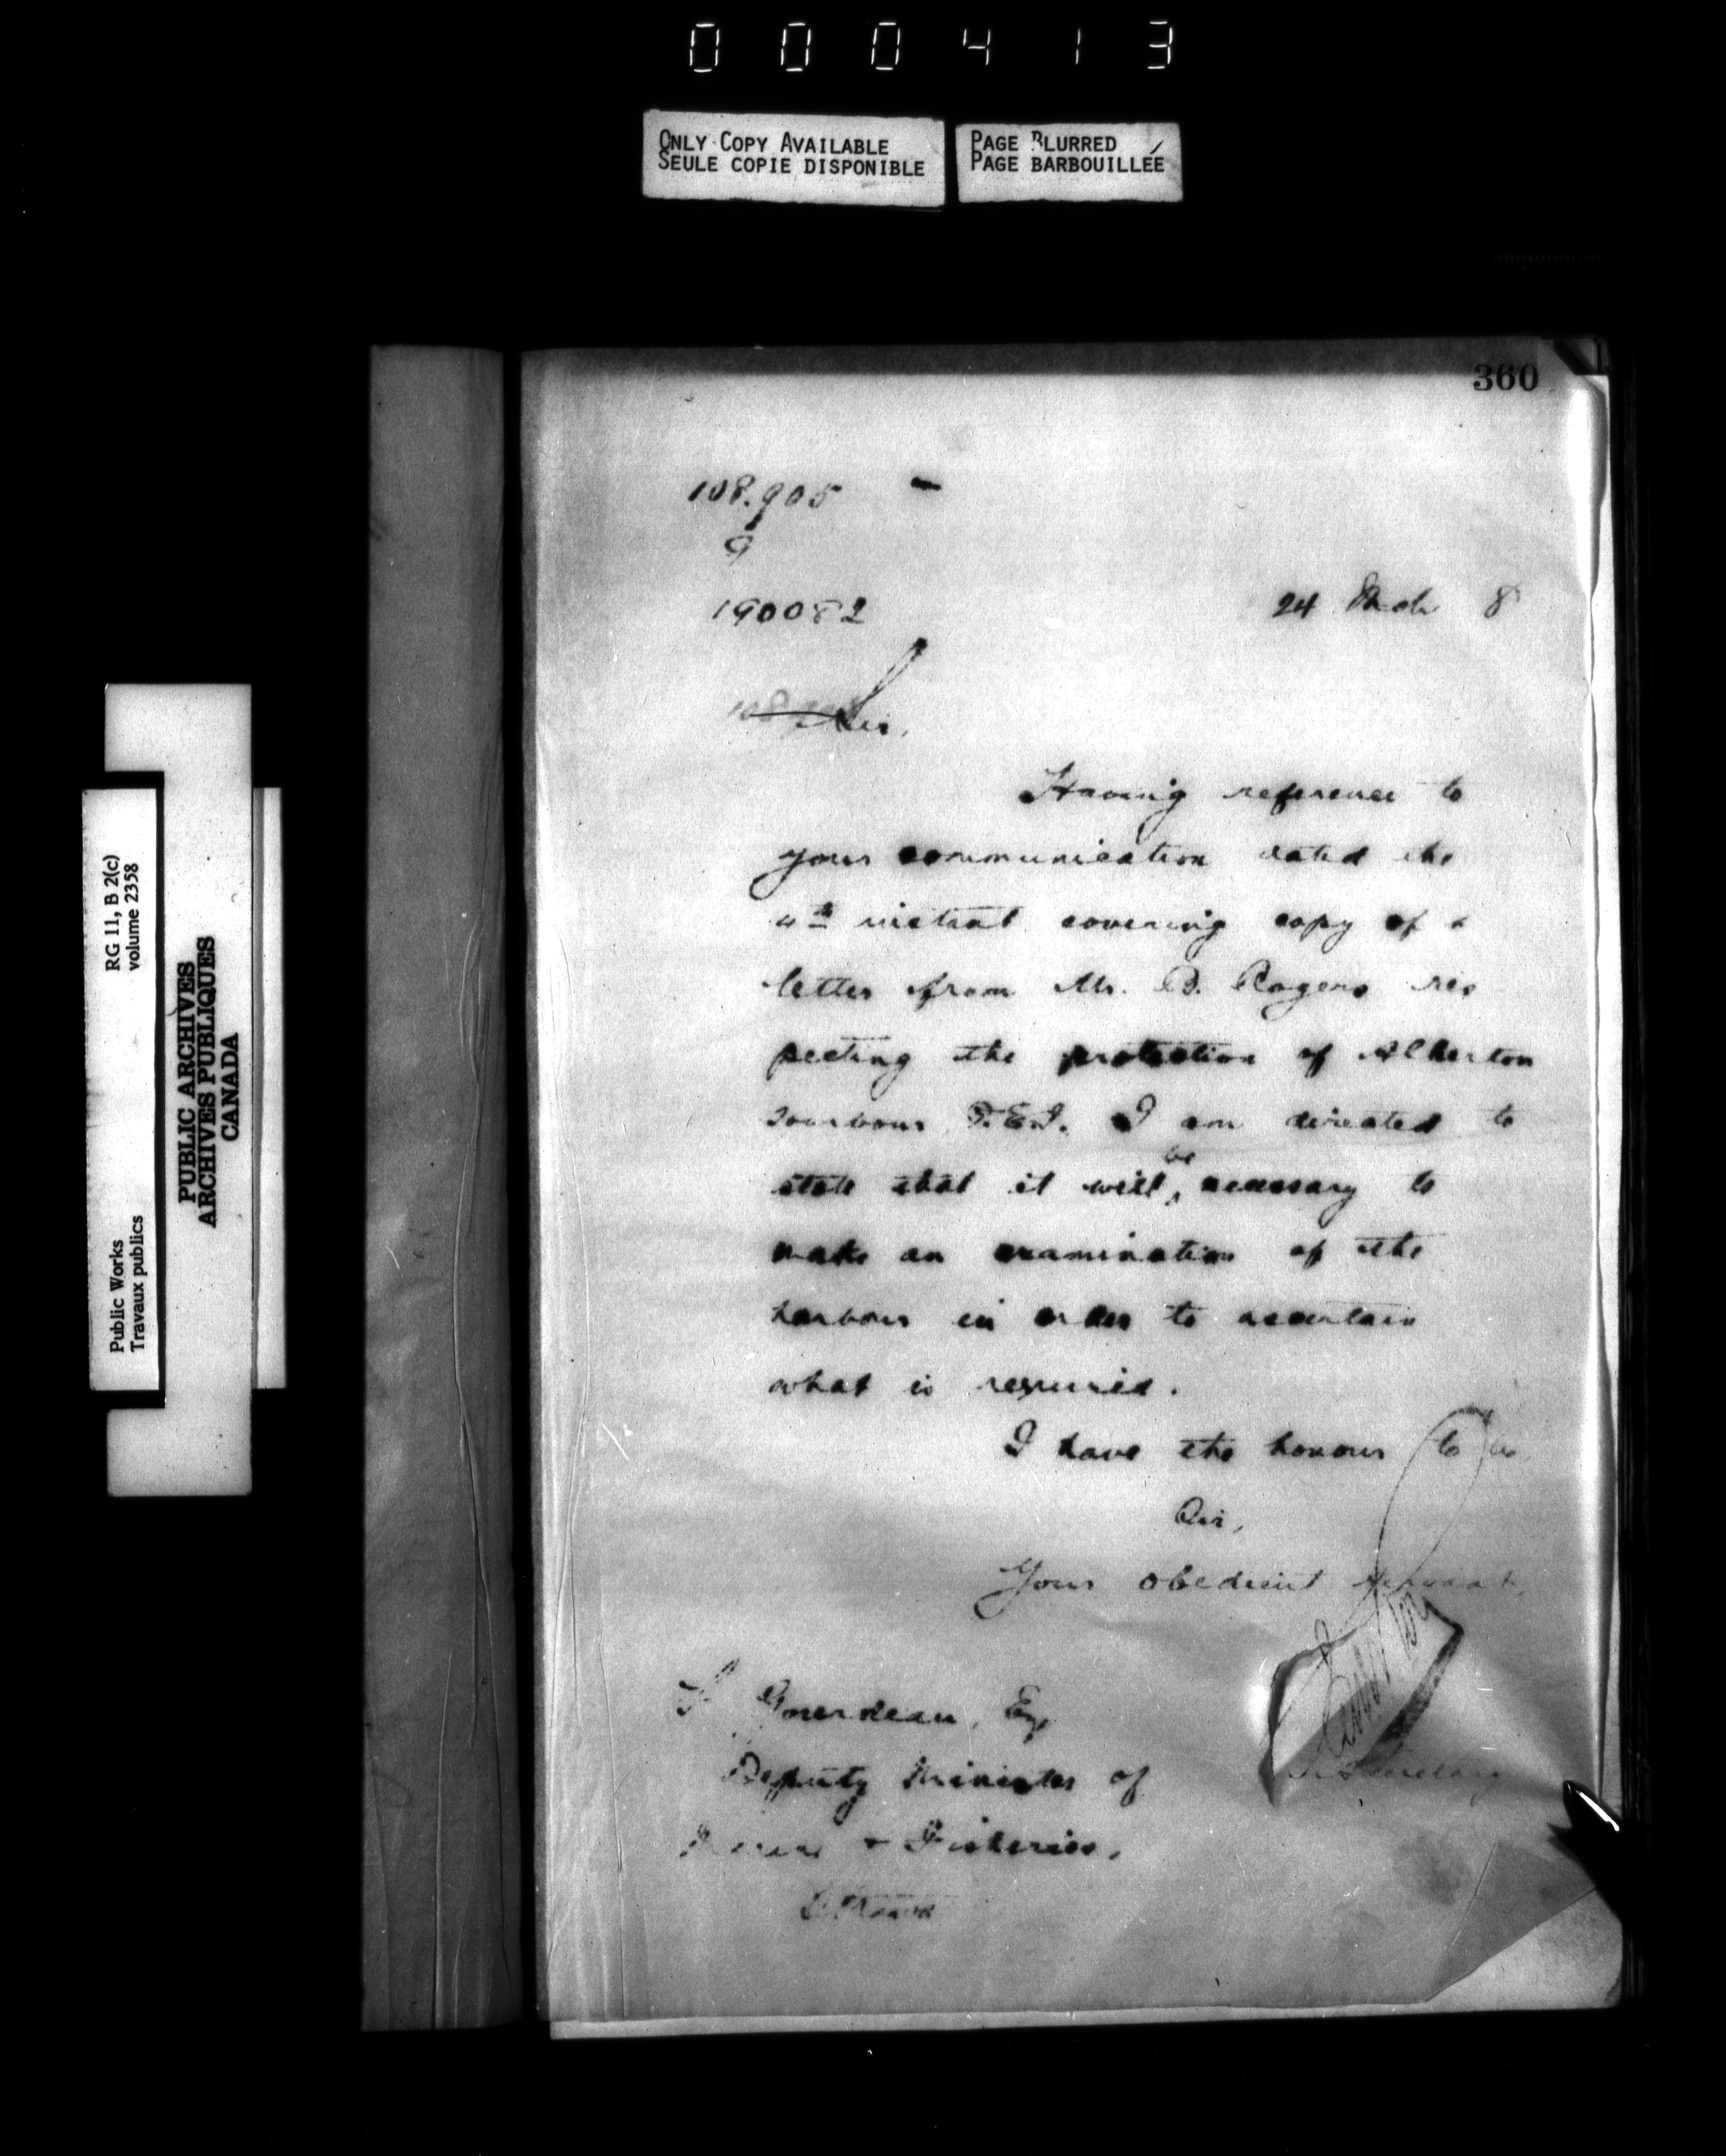 000413
ONLY COPY AVAILABLE
SEULE COPIE DISPONIBLE
PAGE BLURRED
PAGE BARBOUILLÉE
RG 11, B 2(c)
volume 2358
PUBLIC ARCHIVES
ARCHIVES PUBLIQUES
CANADA
Public Works
Travaux publics
360
108.905
9
190082
24 Mch 8
Sir,
Having reference to
your communication dated the
4th instant covering copy of a
letter from Mr. B. Rogers res
pecting the protection of Alberton
Harbour P.E.I. I am directed to
state that it will be necessary to
make an examination of the
harbour in order to ascertain
what is required.
I have the honour to be
Sir,
Your obedient servant,
F Gourdeau, Esq
Secretary
Deputy Minister of
Marine & Fisheries,
Ottawa